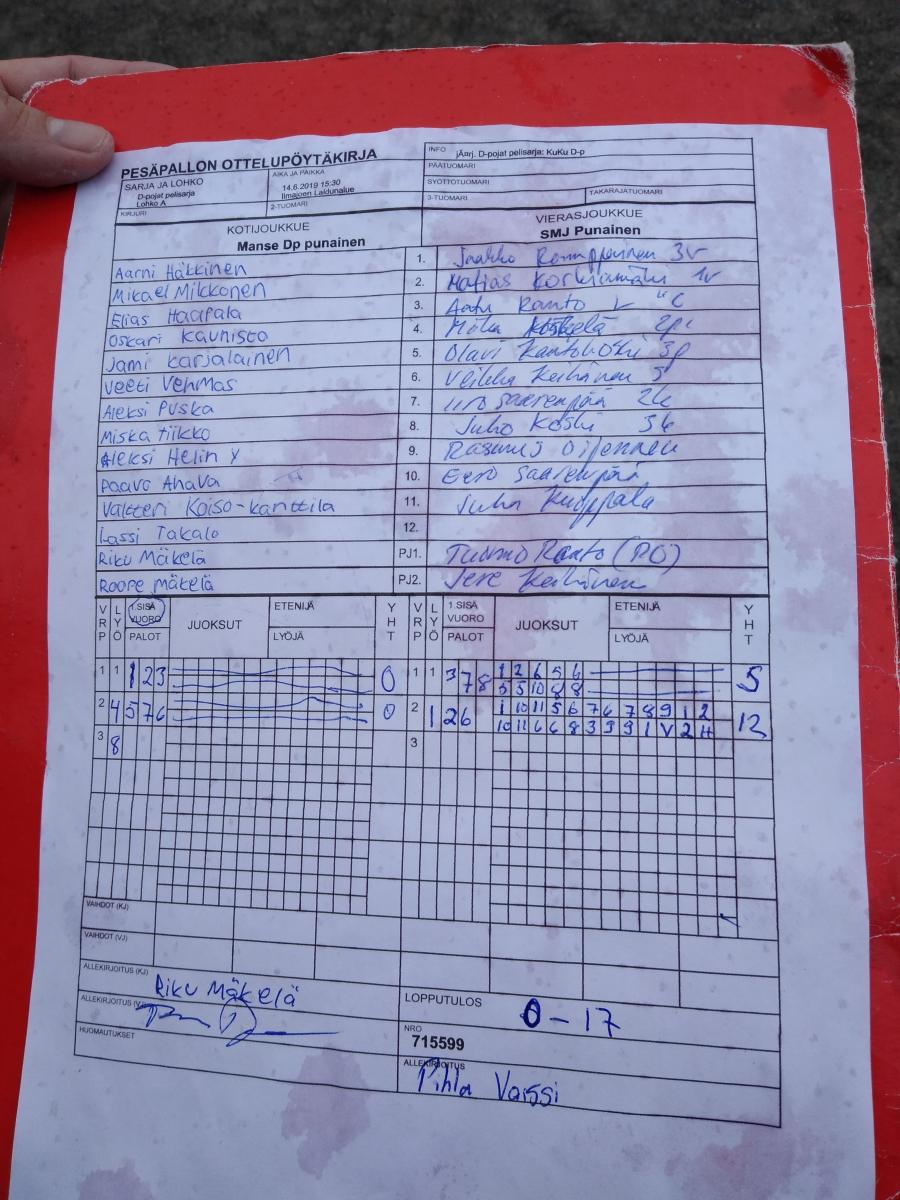 PESÄPALLON OTTELUPÖYTÄKIRJA
SARJA JA LOHKO
D-pojat pelisarja
Lohko A
AIKA JA PAIKKA
14.6.2019 15:30
Ilmajoen Laidunalue
KIRJURI
2-TUOMARI
INFO jÄarj. D-pojat pelisarja: KuKu D-p
PÄÄTUOMARI
SYÖTTÖTUOMARI
3-TUOMARI
TAKARAJATUOMARI
KOTIJOUKKUE
Manse Dp punainen
VIERASJOUKKUE
SMJ Punainen
Aarni Häkkinen 1. Jaakko 3v
Mikael Mikkonen 2. Matias 1v
Elias Haapala 3. Aatu Ranto L
Oskari Kaunisto 4.
Jami Karjalainen 5. Olavi 3p
Veeti Vehmas 6. Veikka Keihänen
Aleksi Puska 7. Saarenpää 2k
Miska Tiikko 8. Juho Koski 3k
Aleksi Helin Y 9.
Paavo Ahava 10. Eero Saarenpää
Valtteri Koiso-Kanttila 11.
Lassi Takalo 12.
Riku Mäkelä PJ1. Tuomo Ranto (PÖ)
Roope Mäkelä PJ2. Jere Keihänen
VRP LYÖ 1.SISÄ VUORO PALOT JUOKSUT ETENIJÄ LYÖJÄ YHT VRP LYÖ 1.SISÄ VUORO PALOT JUOKSUT ETENIJÄ LYÖJÄ YHT
1 1 1 2 3 0 1 1 3 7 8 1 2 6 5 6 5
5 5 10 8 8
2 4 5 7 6 0 2 1 2 6 1 10 11 5 6 7 6 7 8 9 1 2 12
10 11 6 6 8 3 9 9 1 V 2 H
3 8 3
VAIHDOT (KJ)
VAIHDOT (VJ)
ALLEKIRJOITUS (KJ) Riku Mäkelä
ALLEKIRJOITUS (VJ)
HUOMAUTUKSET
LOPPUTULOS 0-17
NRO
715599
ALLEKIRJOITUS
Pihla Vaissi